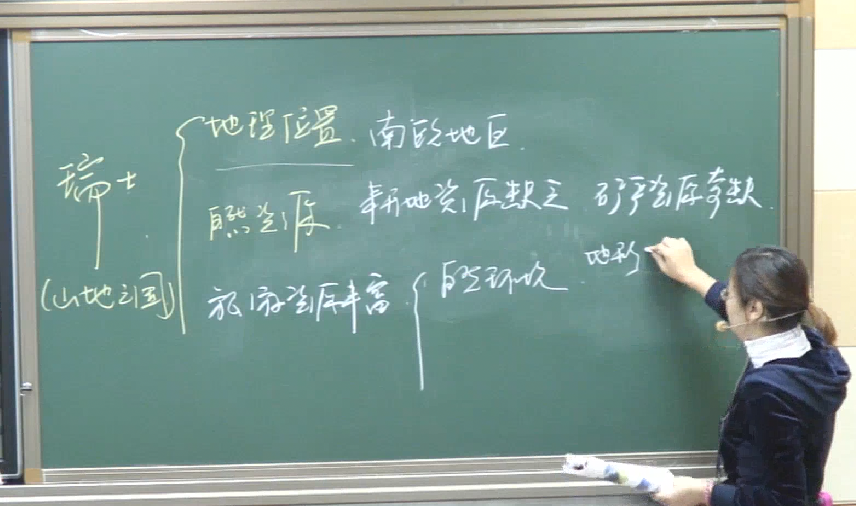 地理位置. 南欧地区.
瑞士
自然资源. 耕地资源缺乏 矿产资源奇缺.
(山地之国)
旅游资源丰富. 自然环境. 地形